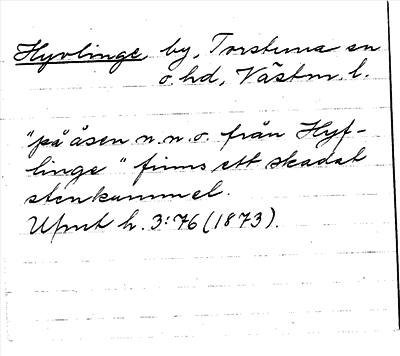 Hyvlinge by, Torstuna sn
o. hd, Västm. l.
"på åsen n.n.o. från Hyf-
linge" finns ett skadat
stenkummel.
Upmt h. 3:76 (1873).